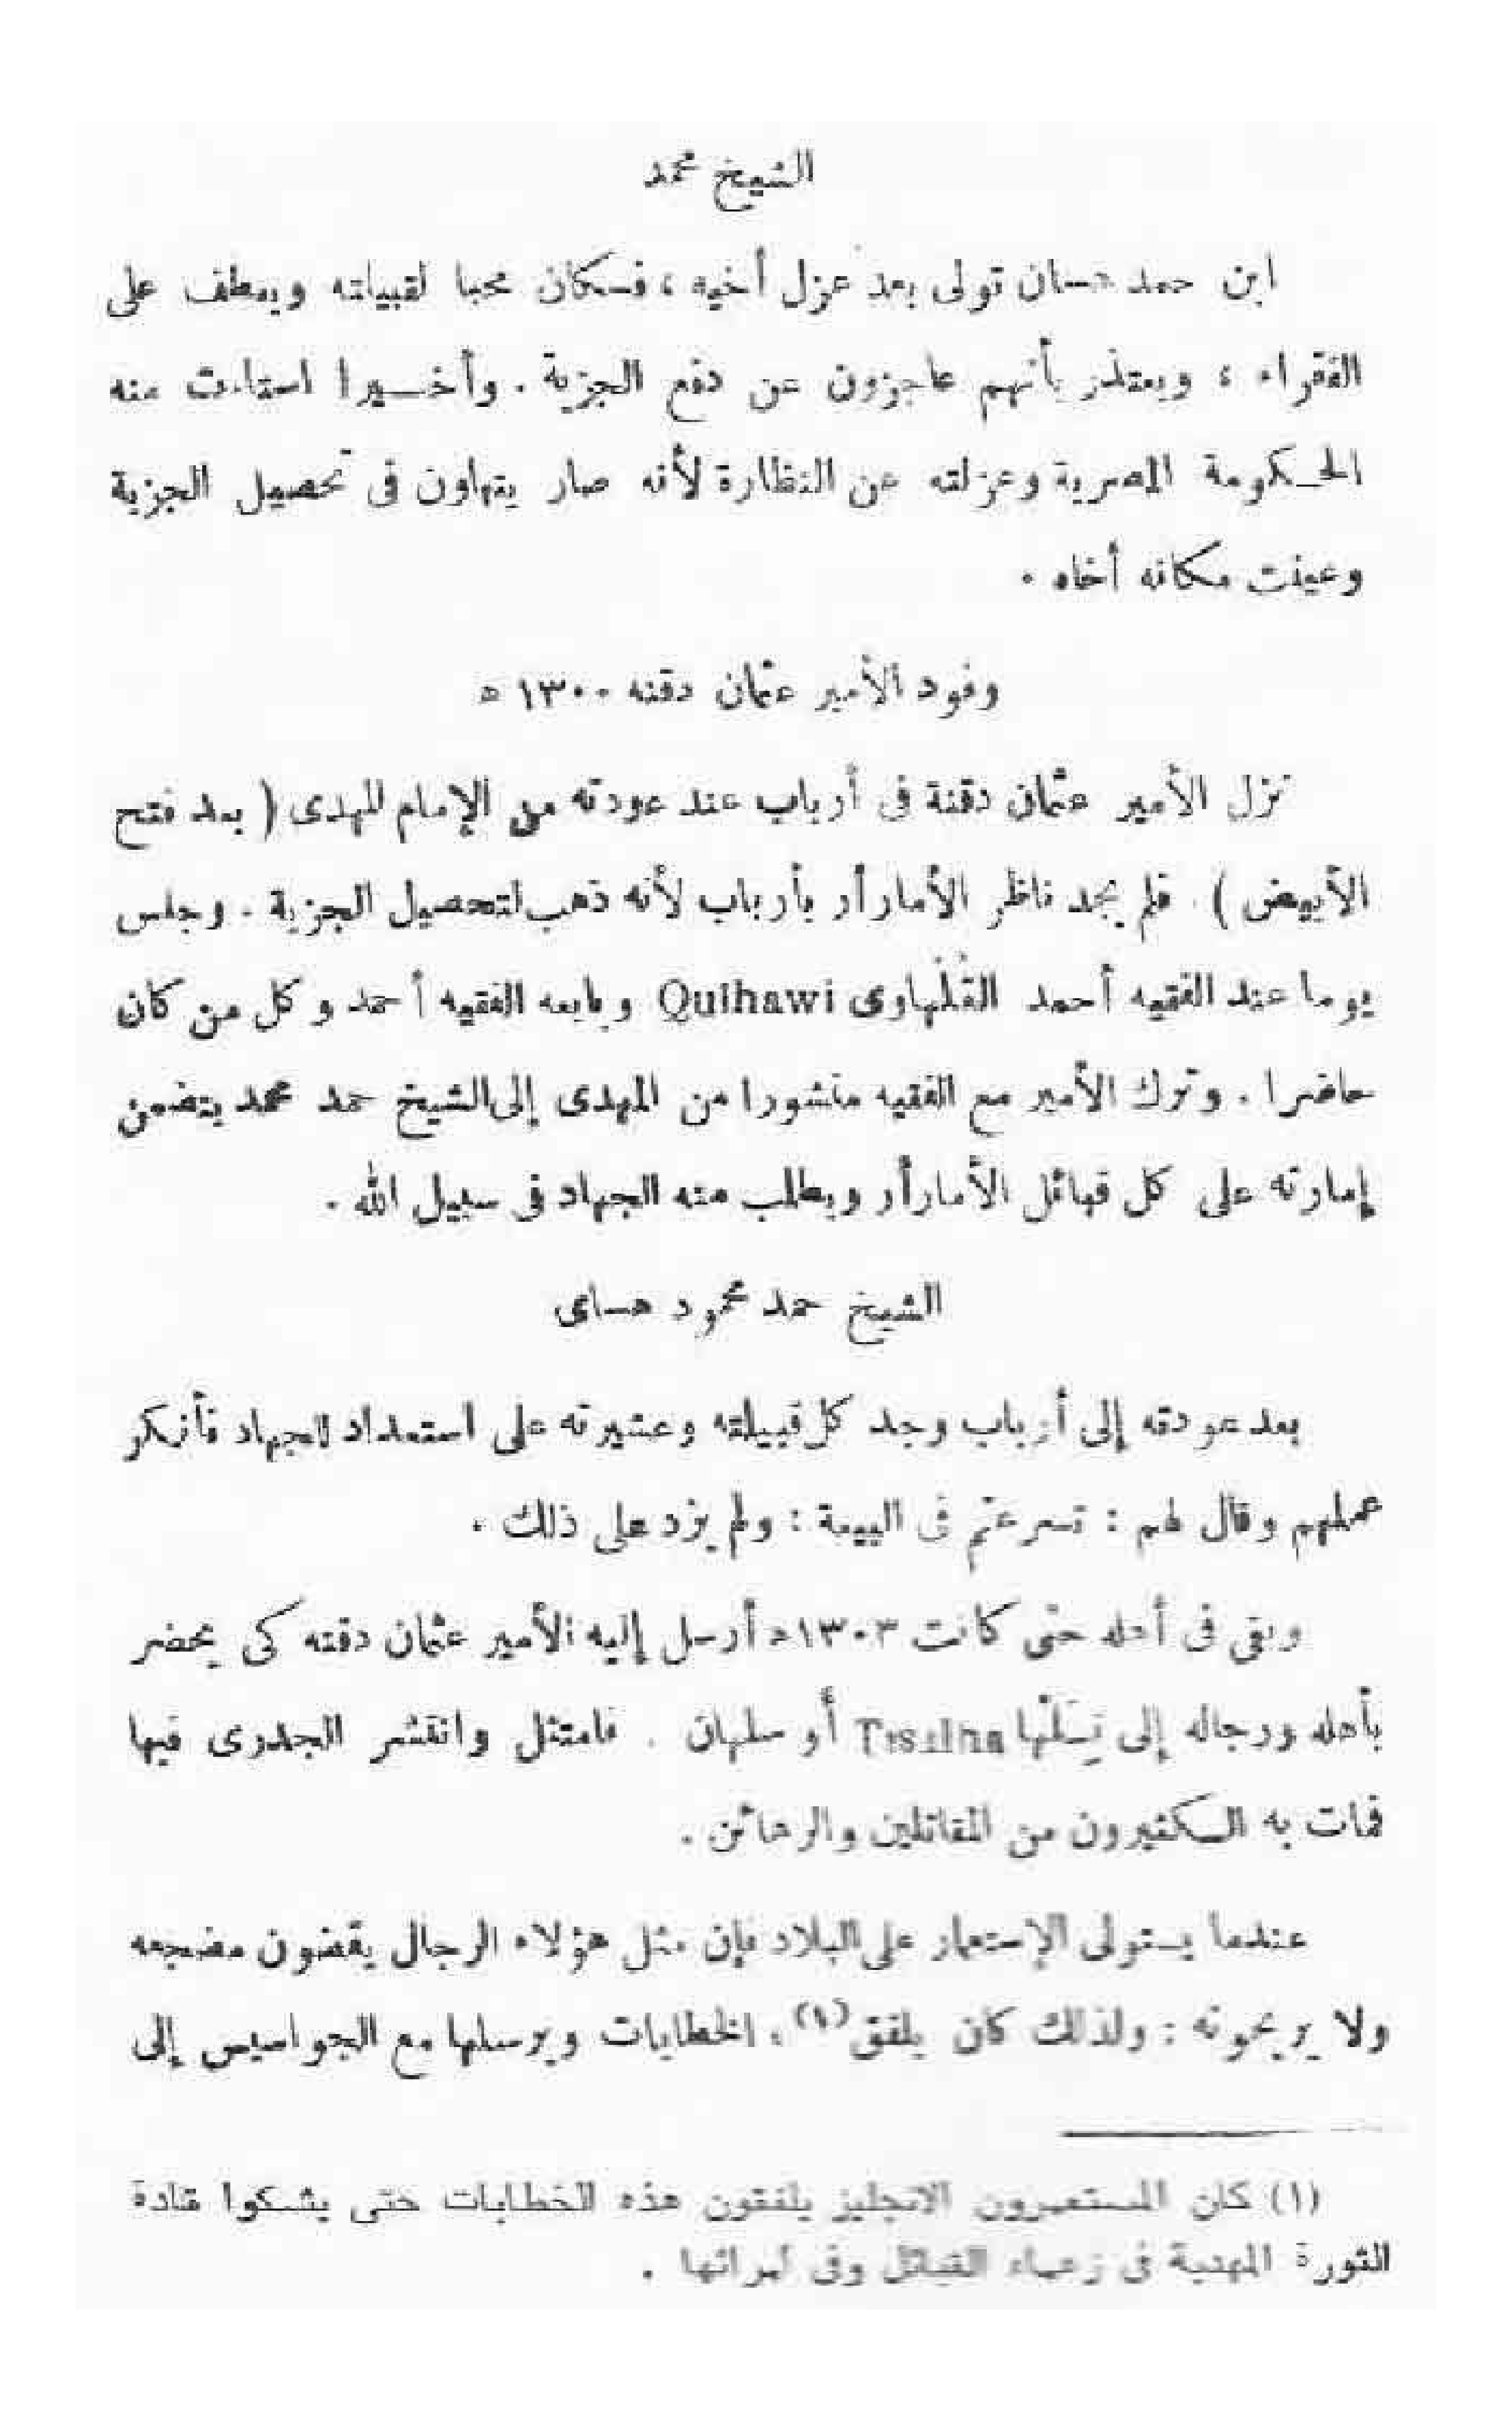 الشيخ محمد
ابن حمد حسان تولى بعد عزل أخيه ، فكان محبا لقبيلته ويعطف على
الفقراء ؛ ويعتذر بأنهم عاجزون عن دفع الجزية . وأخيرا استاءت منه
الحكومة المصرية وعزلته عن النظارة لأنه صار يتهاون فى تحصيل الجزية
وعينت مكانه أخاه .
وفود الأمير عثمان دقنه ١٣٠٠ ه
نزل الأمير عثمان دقنة فى أرباب عند عودته من الإمام المهدى ( بعد فتح
الأبيض ) . فلم يجد ناظر الأمارأر بأرباب لأنه ذهب لتحصيل الجزية . وجلس
يوما عند الفقيه أحمد القُلْهاوى Qulhawi وبايعه الفقيه أحمد وكل من كان
حاضرا . وترك الأمير مع الفقيه منشورا من المهدى إلى الشيخ حمد محمد يتضمن
إمارته على كل قبائل الأمارأر ويطلب منه الجهاد فى سبيل الله .
الشيخ حمد محمود هساى
بعد عودته إلى أرباب وجد كل قبيلته وعشيرته على استعداد للجهاد فأنكر
عملهم وقال لهم : تسرعتم فى البيعة : ولم يزد على ذلك .
وبقى فى أهله حتى كانت ١٣٠٣ه أرسل إليه الأمير عثمان دقنه كى يحضر
بأهله ورجاله إلى تِسَلْها Tisilha أو سلهان . فامتثل وانتشر الجدرى فيها
فمات به الكثيرون من المقاتلين والرهائن .
عندما يستولى الإستعمار على البلاد فإن مثل هؤلاء الرجال يقضون مضجعه
ولا يريحونه : ولذلك كان يلفق (١) ، الخطابات ويرسلها مع الجواسيس إلى
(١) كان المستعمرون الانجليز يلفقون هذه الخطابات حتى يشككوا قادة
الثورة المهدية فى زعماء القبائل وفى أمرائها .